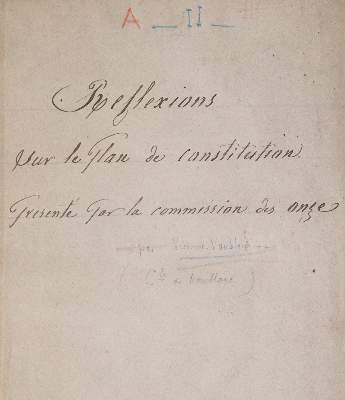 A _ II _
Reflexions
sur le Plan de constitution
Presenté Par la commission des onze
par